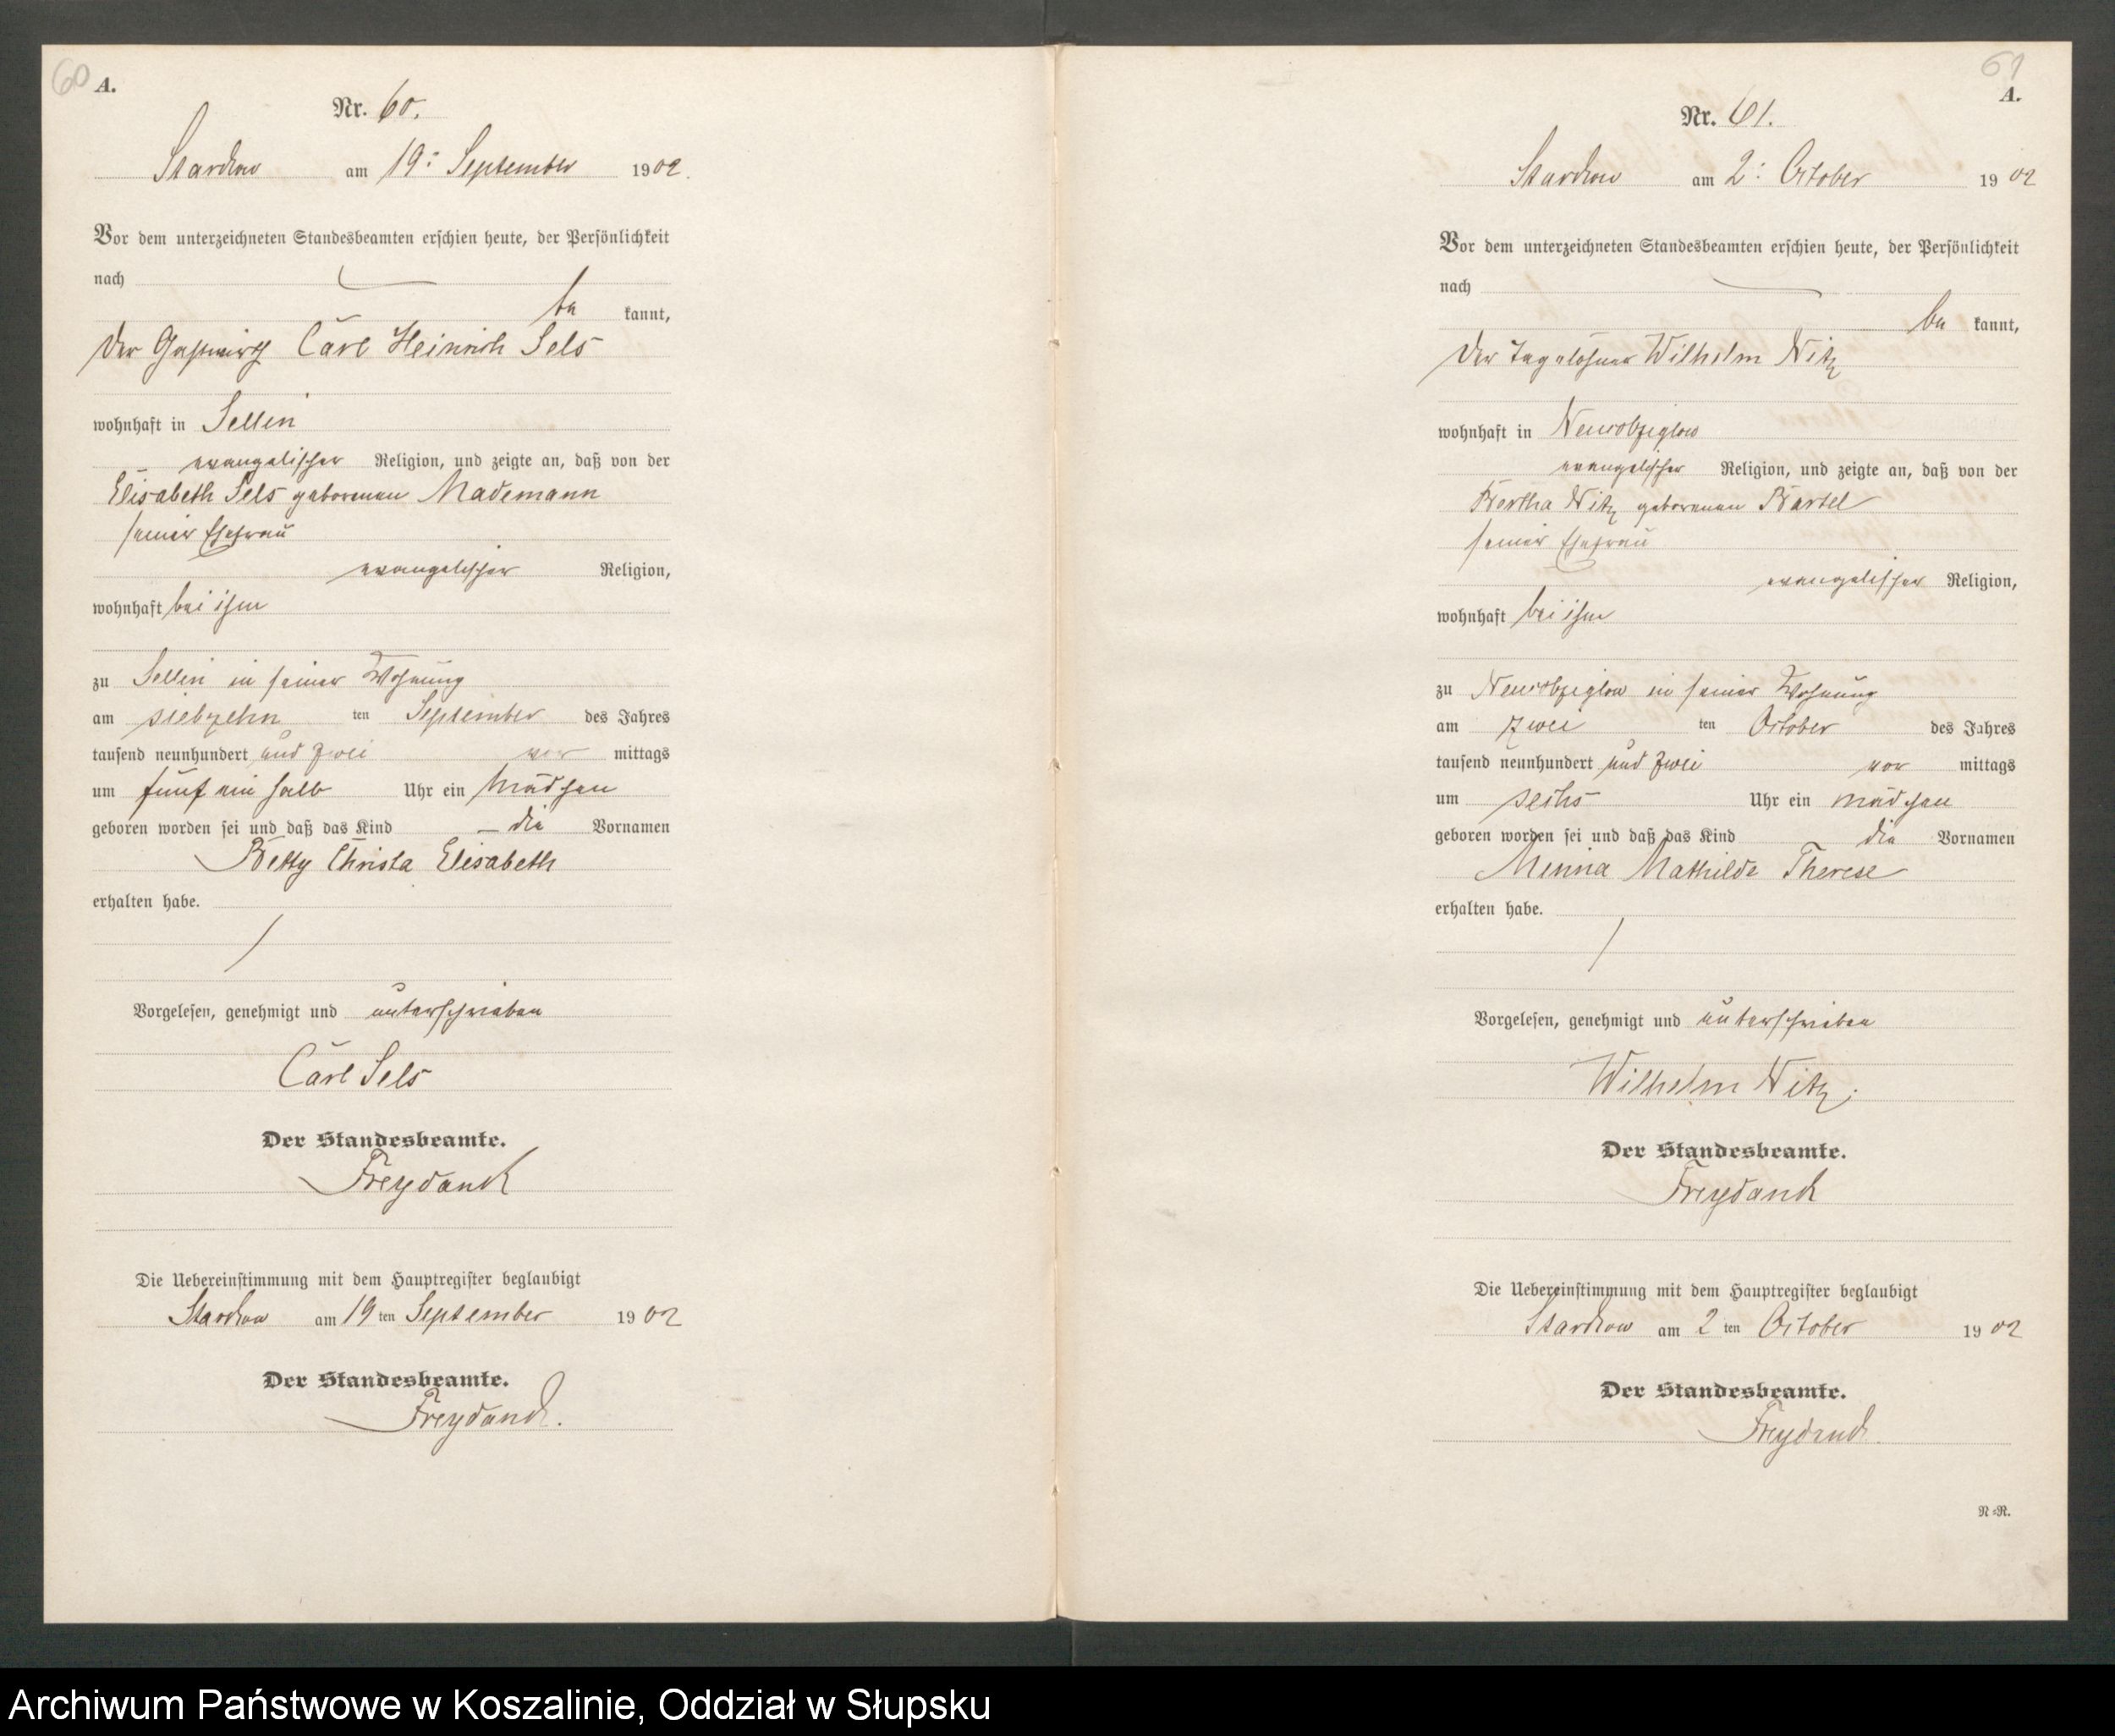 60
A.
Nr. 60.
Starckow am 19: September 1902.
Vor dem unterzeichneten Standesbeamten erschien heute, der Persönlichkeit
nach
be kannt,
Der Gastwirth Carl Heinrich Sels
wohnhaft in Sellin
evangelischer Religion, und zeigte an, daß von der
Elisabeth Sels geborenen Mademann
seiner Ehefrau
evangelischer Religion,
wohnhaft bei ihm
zu Sellin in seiner Wohnung
am siebzehn ten September des Jahres
tausend neunhundert und zwei vor mittags
um fünf ein halb Uhr ein Mädchen
geboren worden sei und daß das Kind die Vornamen
Betty Christa Elisabeth
erhalten habe.
Vorgelesen, genehmigt und unterschrieben
Carl Sels
Der Standesbeamte.
Freydanck
Die Uebereinstimmung mit dem Hauptregister beglaubigt
Starckow am 19 ten September 1902
Der Standesbeamte.
Freydanck.
61
A.
Nr. 61.
Starckow am 2: October 1902
Vor dem unterzeichneten Standesbeamten erschien heute, der Persönlichkeit
nach
be kannt,
Der Tagelöhner Wilhelm Nitz
wohnhaft in
evangelischer Religion, und zeigte an, daß von der
Bertha Nitz geborenen Bartel
seiner Ehefrau
evangelischer Religion,
wohnhaft bei ihm
zu in seiner Wohnung
am zwei ten October des Jahres
tausend neunhundert und zwei vor mittags
um sechs Uhr ein Mädchen
geboren worden sei und daß das Kind die Vornamen
Minna Mathilde Therese
erhalten habe.
Vorgelesen, genehmigt und unterschrieben
Wilhelm Nitz.
Der Standesbeamte.
Freydanck
Die Uebereinstimmung mit dem Hauptregister beglaubigt
Starckow am 2 ten October 1902
Der Standesbeamte.
Freydanck.
N=R.
Archiwum Państwowe w Koszalinie, Oddział w Słupsku